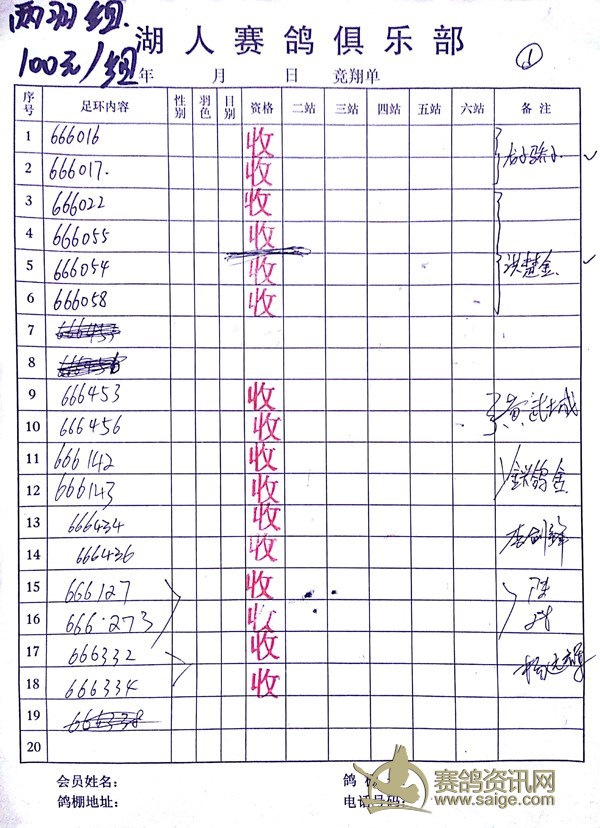 两羽组.
湖人赛鸽俱乐部
100元/组
年 月 日 竞翔单 ①
序号 足环内容 性别 羽色 目别 资格 二站 三站 四站 五站 六站 备注
1 666016 收
2 666017. 收
3 666022 收
4 666055 收
5 666054 收 洪楚金
6 666058 收
7
8
9 666453 收 黄武城
10 666456 收
11 666142 收
12 666143 收
13 666434 收 李剑锋
14 666436 收
15 666127 收 陈
16 666·273 收
17 666332 收
18 666334 收
19 666338
20
会员姓名: 鸽
鸽棚地址: 电话号码:
赛鸽资讯网
www.saige.com